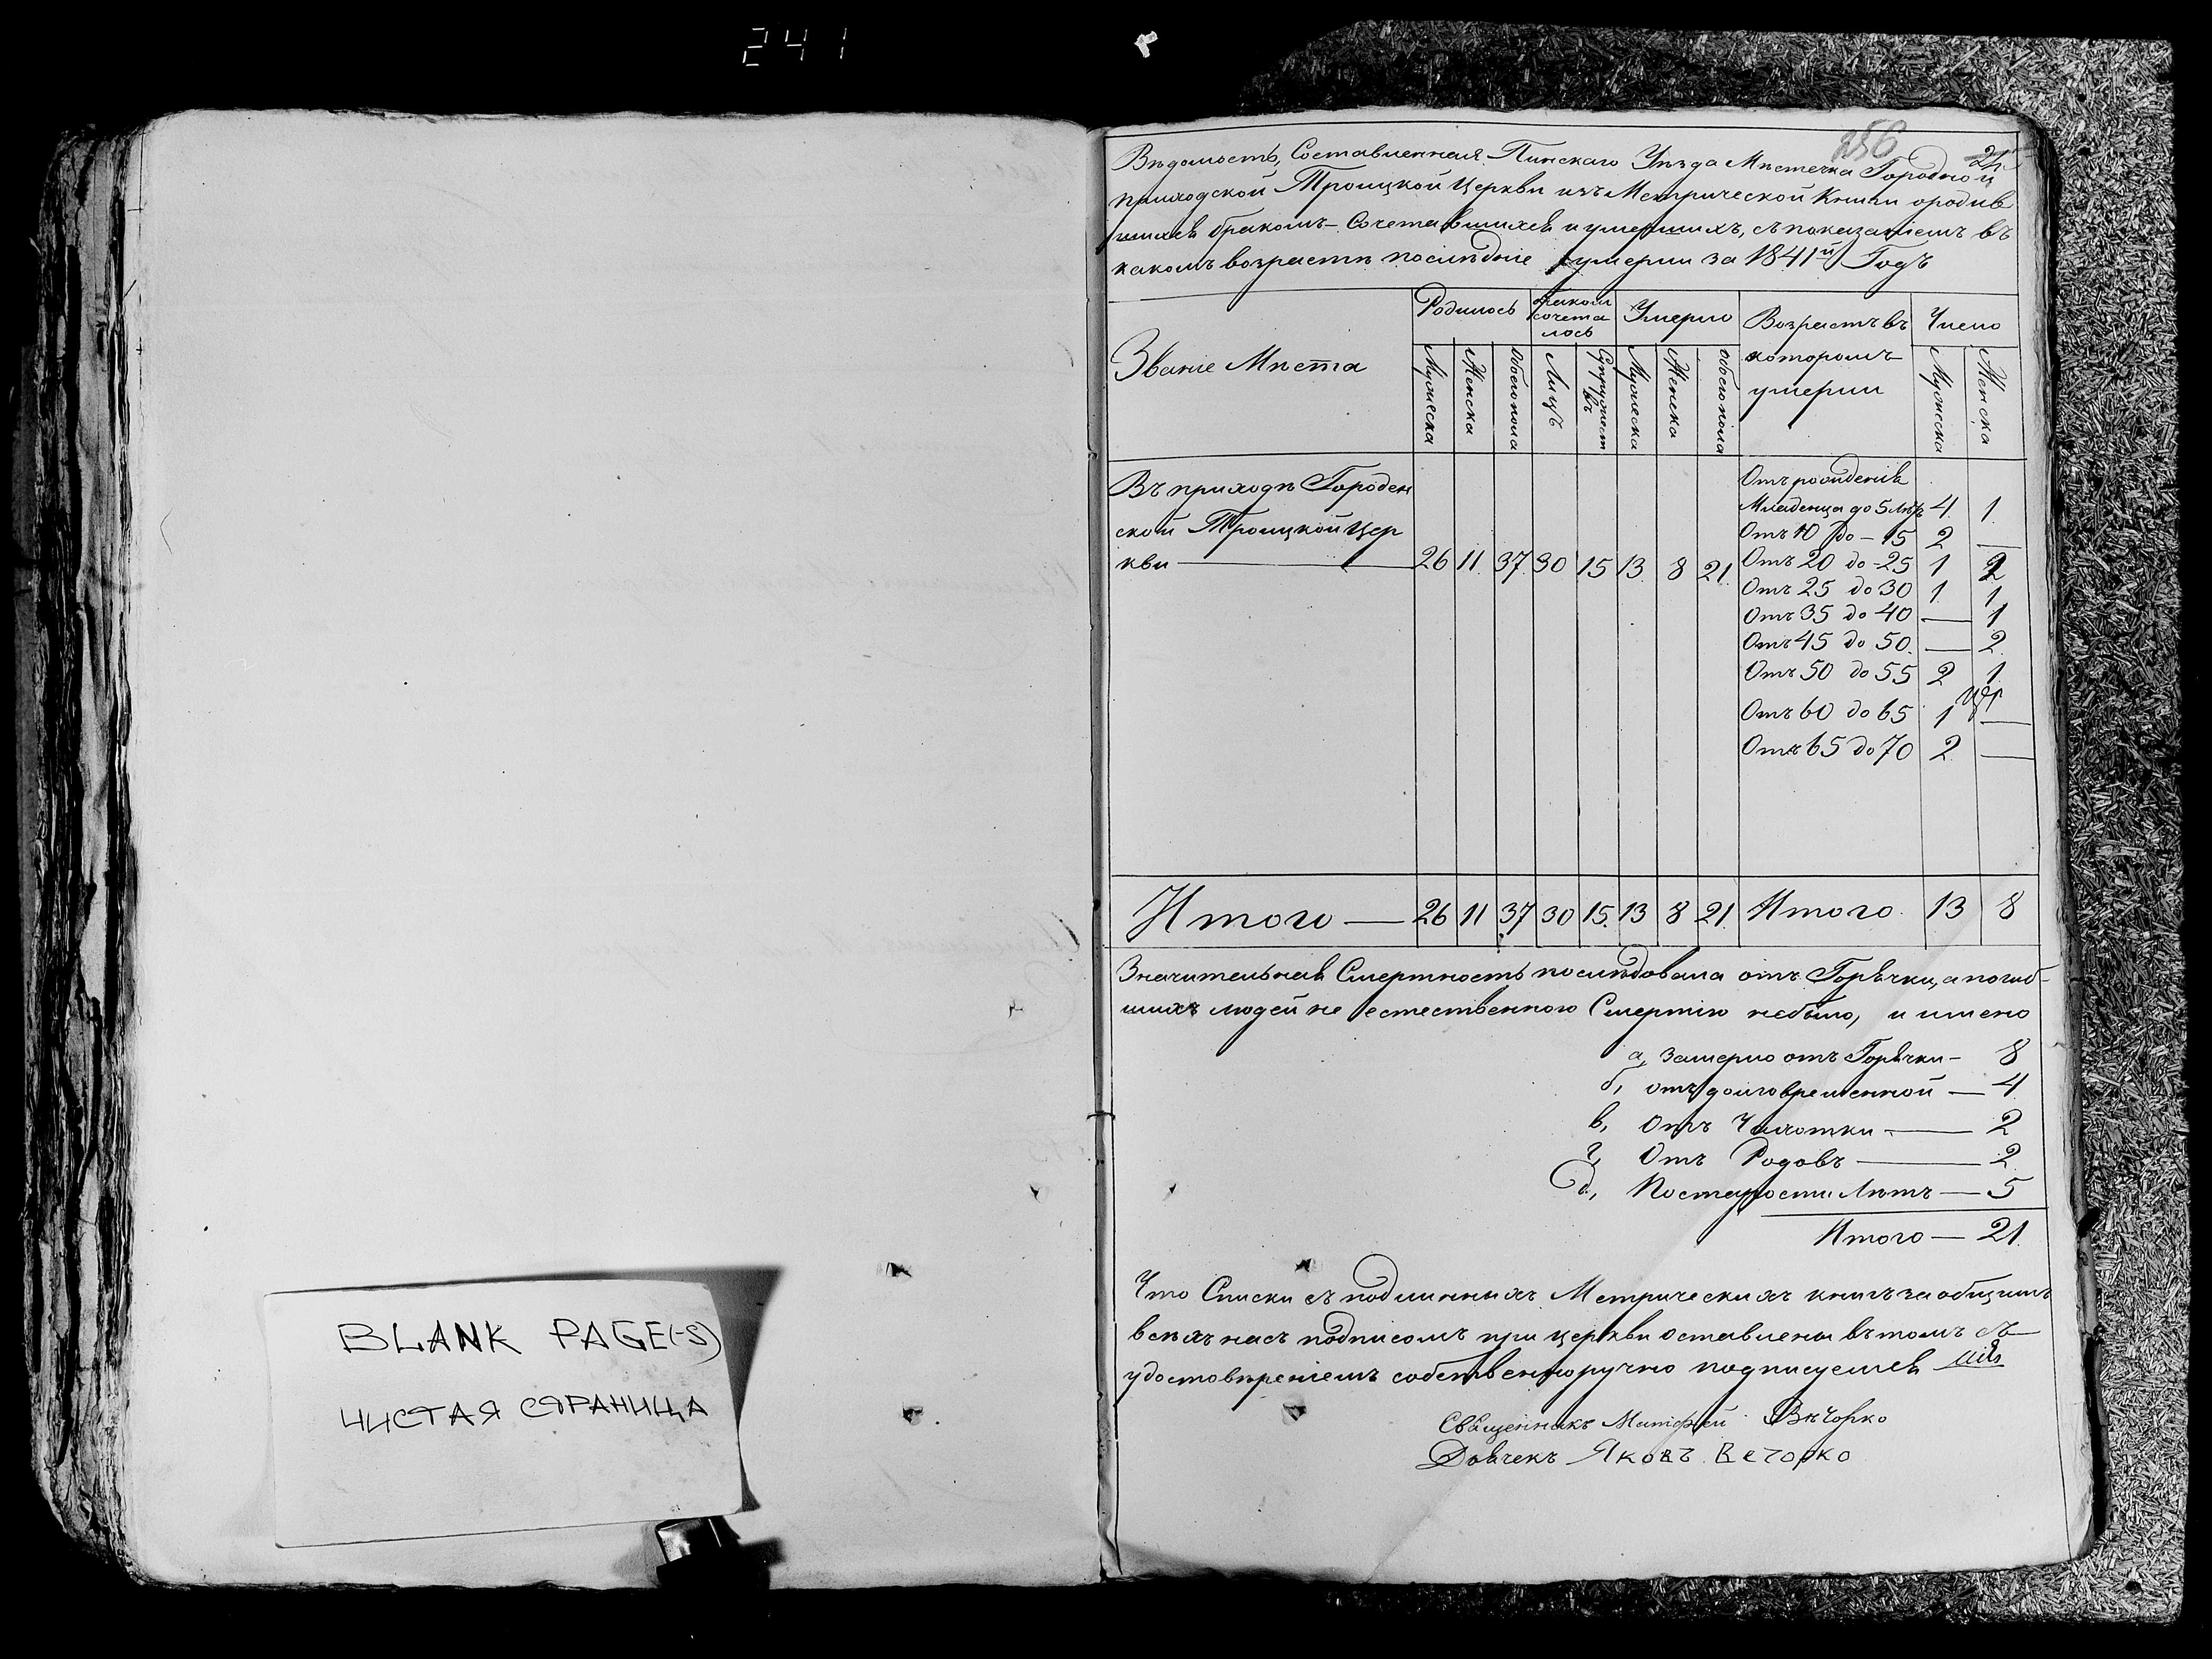 241
BLANK PAGE(-S)
ЧИСТАЯ СТРАНИЦА
256
Вѣдомость, Составленная Пинскаго Уѣзда Мѣстечка Городной
приходской Троицкой Церкви изъ Метрической Книги о родив
шихся бракомъ-Сочетавшихся и умершихъ, съ показаніемъ въ
какомъ возрастѣ послѣдніе умерли за 1841й Годъ
Званіе Мѣста
Родилось
бракомъ сочета лось
Умерло
Возрастъ въ которомъ умерли
Число
Мужеска
Женска
Обоего пола
Лицъ
Супружествъ
Мужеска
Женска
обоего пола
Мужска
Женска
Въ приходѣ Городен
ской Троицкой Цер
кви — 26 11. 37. 30 15 13. 8 21.
Отъ рожденія
Младенца до 5 лѣтъ 4. 1.
Отъ 10 до - 15 2 —
Отъ 20 до - 25 1 2
Отъ 25 до 30 1. 1.
Отъ 35 до 40 — 1
Отъ 45 до 50. — 2.
Отъ 50 до 55 2 1.
Отъ 60 до 65 1 —
Отъ 65 до 70 2. —
Итого — 26 11 37 30 15. 13 8 21. Итого. 13 8
Значительная Смертность послѣдовала отъ Горячки, а погиб-
шихъ людей не естественною Смертію небыло, и имено
а, Замерло отъ Горячки - 8
б, отъ долговременной — 4
в, Отъ Чахотки — 2
г, Отъ Родовъ — 2
д, По старости Лѣтъ — 5
Итого — 21.
Что Списки съ подлинныхъ Метрическихъ книгъ за общимъ
всѣхъ насъ подписомъ при церкви оставлены въ томъ съ
удостовѣреніемъ собственноручно подписуемся
Священникъ Матфей Вѣчорко
Дьячекъ Яковъ Вечорко